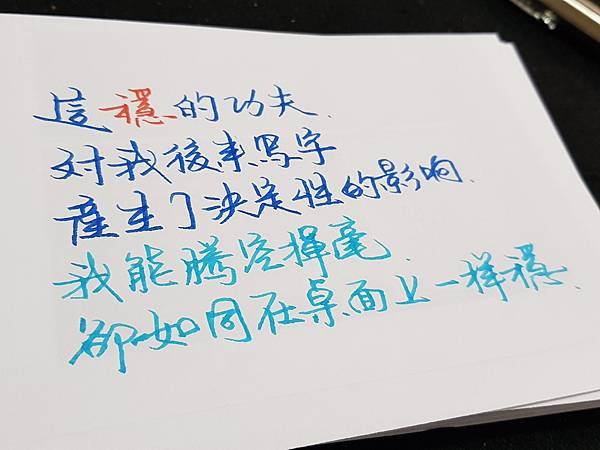 這穩的功夫.
对我後来写字
產生了決定性的影响.
我能騰空揮毫.
卻如同在桌面上一样穩.